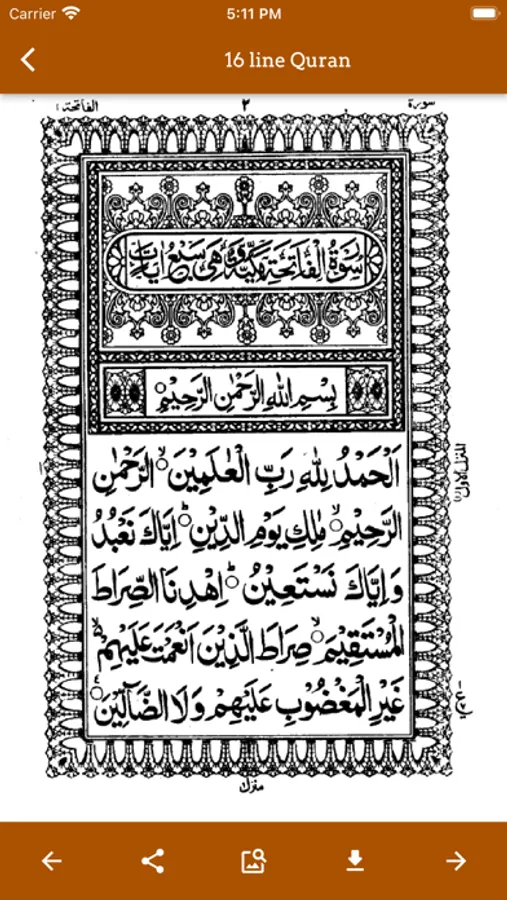 Carrier 5:11 PM
16 line Quran
سورة ٢ الفاتحة
سُوْرَةُ الْفَاتِحَةِ مَكِّيَّةٌ وَّهِيَ سَبْعُ اٰيَاتٍ
بِسْمِ اللّٰهِ الرَّحْمٰنِ الرَّحِيْمِ
اَلْحَمْدُ لِلّٰهِ رَبِّ الْعٰلَمِيْنَ ۙ الرَّحْمٰنِ
الرَّحِيْمِ ۙ مٰلِكِ يَوْمِ الدِّيْنِ ؕ اِيَّاكَ نَعْبُدُ
وَ اِيَّاكَ نَسْتَعِيْنُ ؕ اِهْدِنَا الصِّرَاطَ
الْمُسْتَقِيْمَ ۙ صِرَاطَ الَّذِيْنَ اَنْعَمْتَ عَلَيْهِمْ ۙ
غَيْرِ الْمَغْضُوْبِ عَلَيْهِمْ وَلَا الضَّآلِّيْنَ
منزل